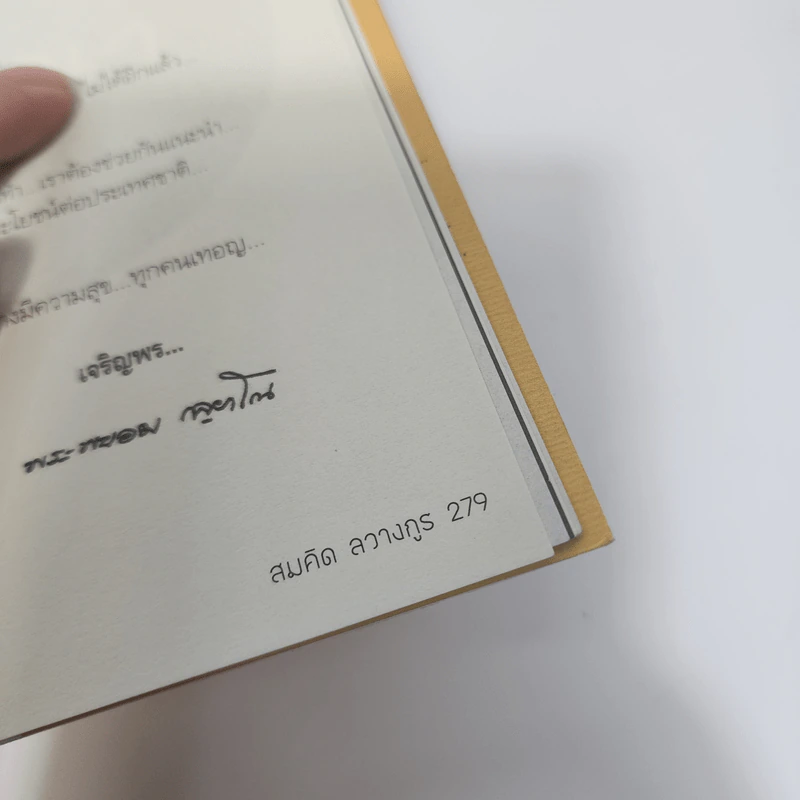 ไม่ได้อีกแล้ว...
เราต้องช่วยกันแนะนำ...
ประเทศชาติ...
มีความสุข...ทุกคนเทอญ...
เจริญพร...
พระพยอม กลฺยาโณ
สมคิด ลวางกูร 279